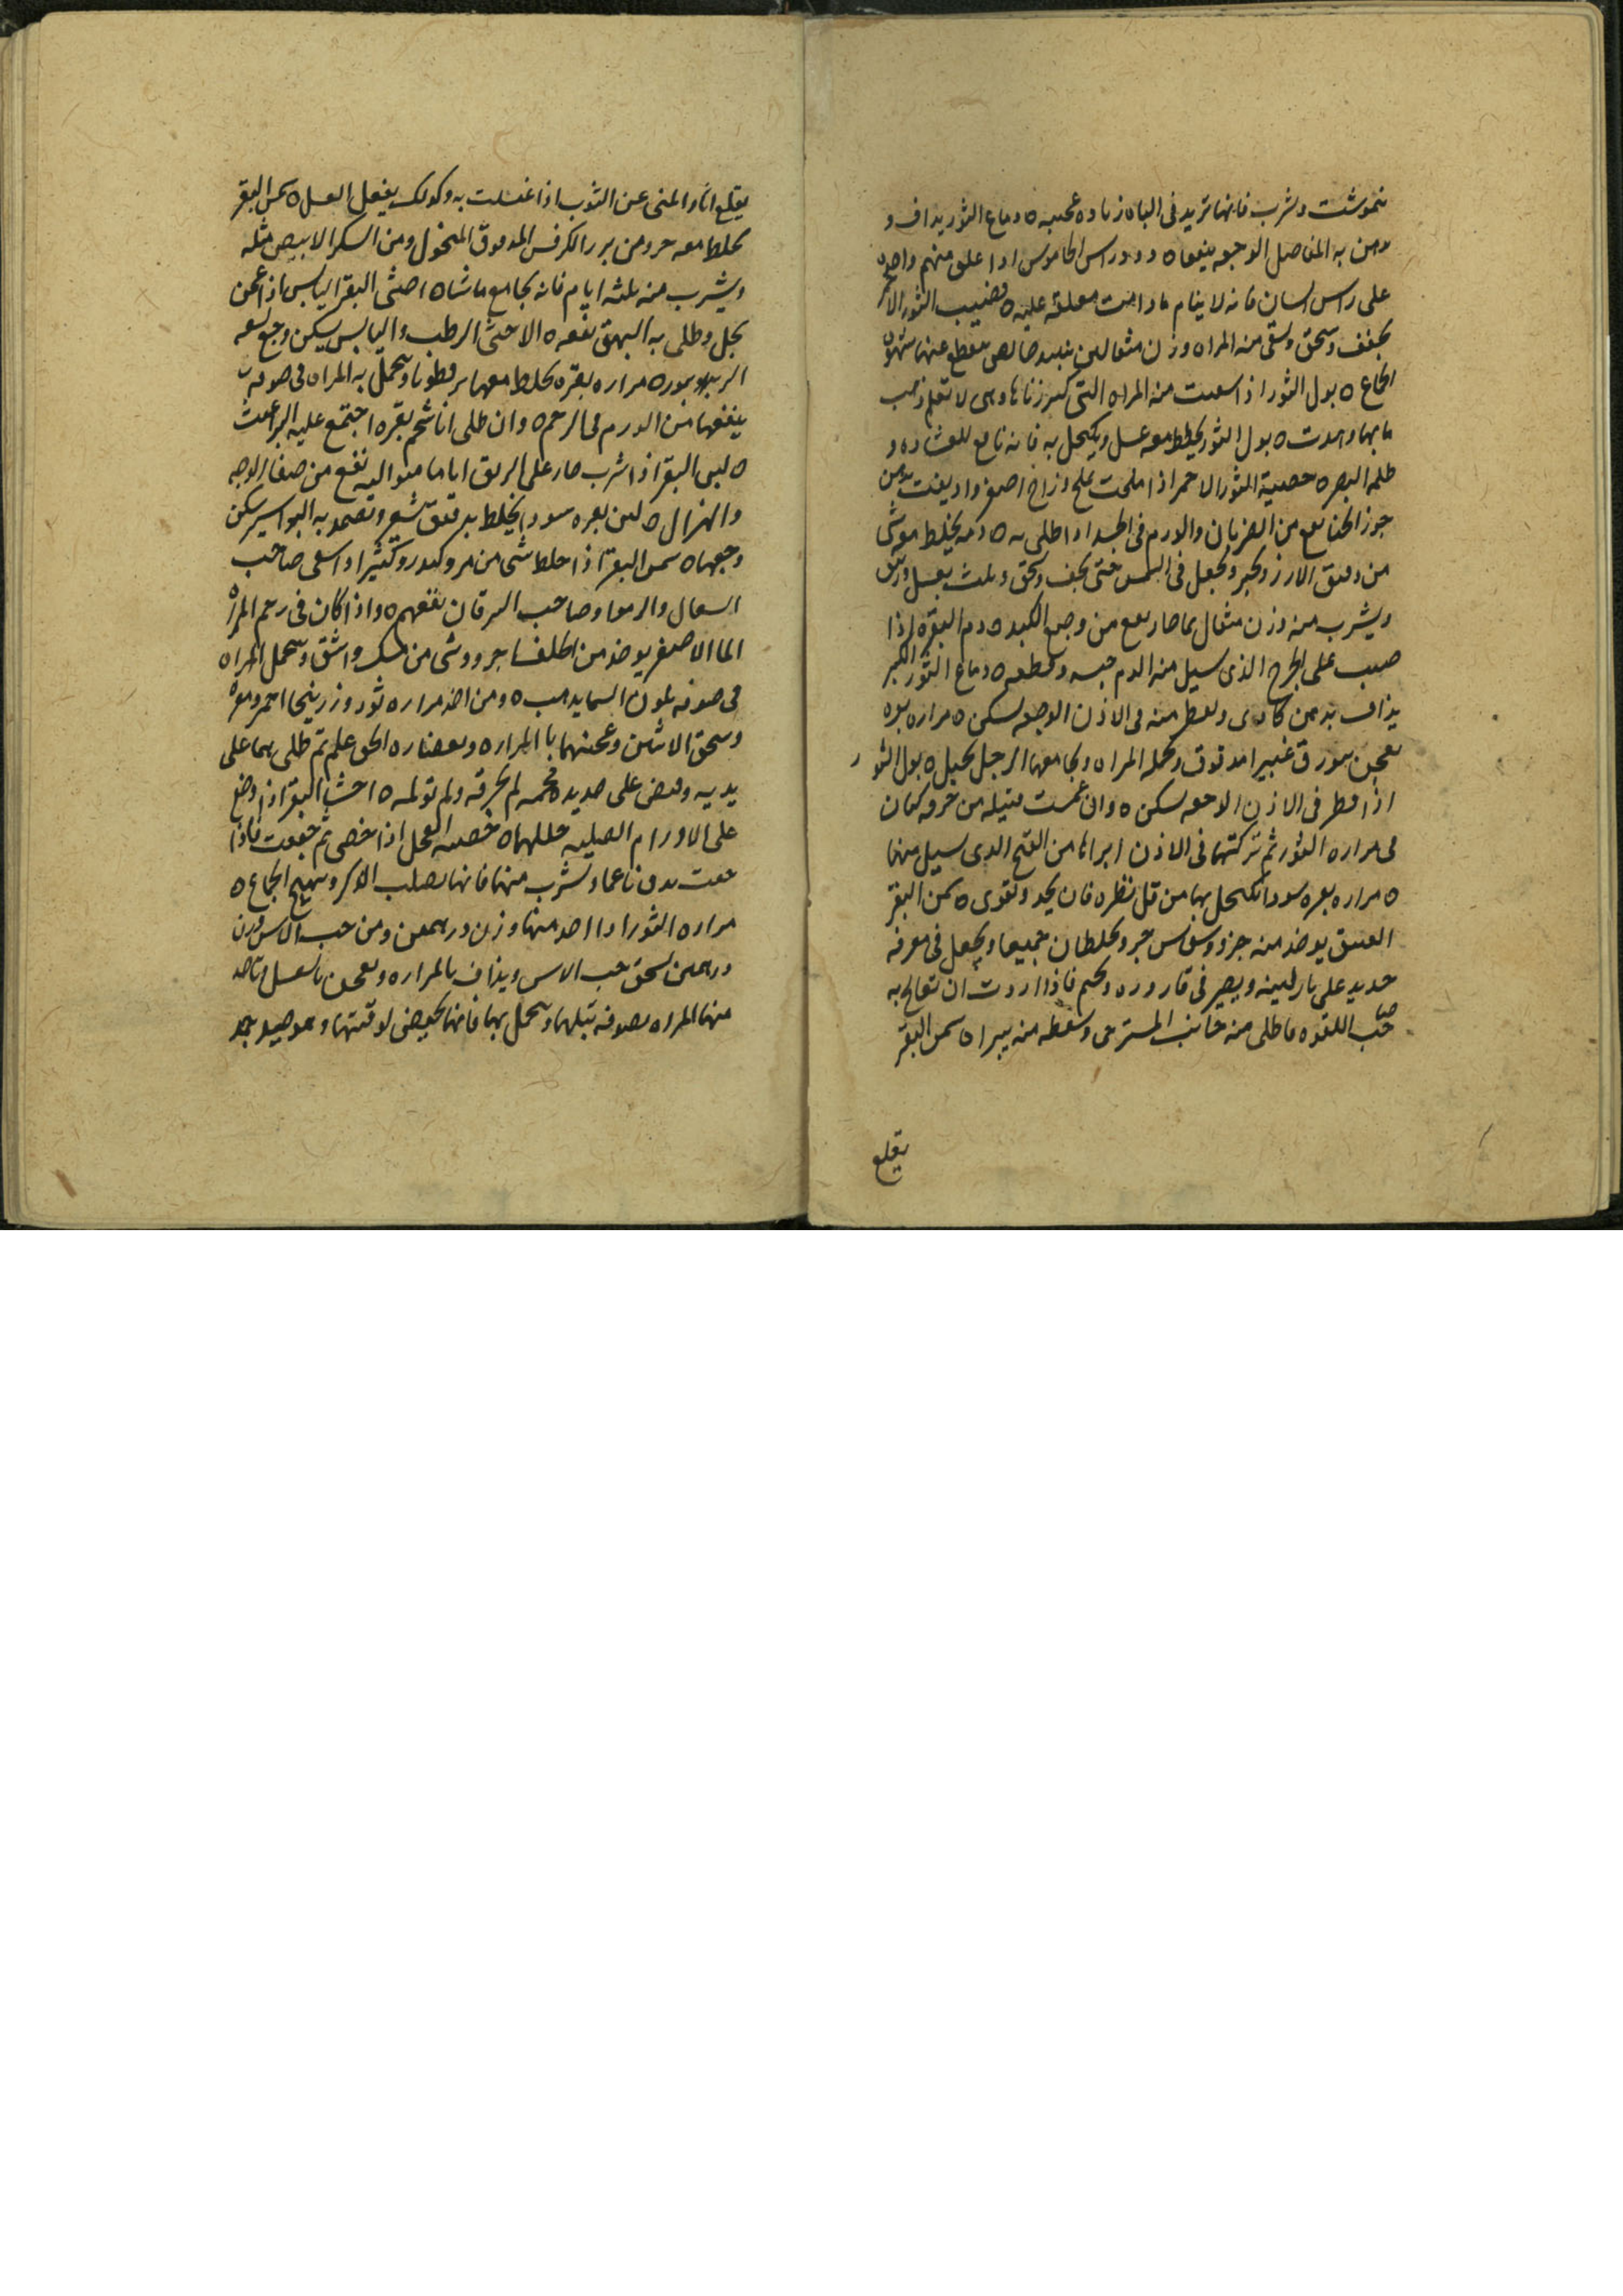 نخموشت وشرب فانها تزيد فى الباه زياده عجيبه ه دماغ الثور يداف و
دهن به المفاصل الوجعه ينفعاه ودود راس الجاموس اذا علق منهم واحده
على راس انسان فانه لا ينام مادامت معلقه عليه ه قضيب الثور الاحمر
يجفف وسحق وسقى منه المراه وزن مثقالين بنبيد خالص سقطع عنها شهوه
الجماع ه بول الثور اذا اسعيت منه المراه التى كثر زناها وهى لا تعلم ذهب
ما بها وهدت ه بول الثور يخلط معه عسل ويكحل به فانه نافع للغشاوه و
ظلمه البصر ه خصية الثور الاحمر اذا ملحت بملح وزاج اصفر واديفت بدهن
جوز الحنا نفع من الضربان والورم فى الجسد اذا طلى به ه دمه يخلط معه شى
من دقيق الارز ويخبز ويجعل فى الشمس حتى يجف وسحق ويلت بعسل وزيت
ويشرب منه وزن مثقال بما حار نفع من وجع الكبد ه دم البقره اذا
صب على الجرح الذى سيل منه الدم حبسه وقطعه ه دماغ الثور الكبير
يذاف بدهن كادى ويقطر منه فى الاذن الوجعه سكن ه مراره بقره
تعجن ببورق غبيرا مدقوق وتحمله المراه ويجامعها الرجل تحبل ه بول الثور
اذا قطر فى الاذن الوجعه سكن ه وان غمست فتيله من خرقه كتان
فى مراره الثور ثم تركتها فى الاذن ابراها من القيح الذى سيل منها
ه مراره بقره سودا تكحل بها من قل نظره فان يحد ويقوى ه سمن البقر
العتيق يوخذ منه جزو وسوس جزو يخلطان جميعا ويجعل فى مغرفه
حديد على نار لينه ويصير فى قاروره ويختم فاذا اردت ان تعالج به
صاحب اللقوه فاطلى منه جانب المسترخى وسعطه منه يبراه سمن البقر
يقلع
يقلع اثار المنى عن الثوب اذا غسلت به وكذلك يفعل العسل ه سمن البقر
يخلط معه جزو من بزر الكرفس المدقوق المنخول ومن السكر الابيض مثله
ويشرب منه ثلثه ايام فانه يجامع ماشاه احثى البقر اليابس اذا عجن
بخل وطلى به البهق نفعه ه الاحثى الرطب واليابس يسكن وجع لسعه
الزنبور ه مراره بقره يخلط معها بزر قطونا وتحمل به المراه فى صوفه
ينفعها من الورم فى الرحم ه وان طلى انا شحم بقره اجتمع عليه البراغيث
ه لبن البقر اذا شرب حار على الريق اياما متواليه نفع من صفار الوجه
والهزال ه لبن بقره سودا يخلط بدقيق شعير وتضمد به البواسير سكن
وجعها ه سمن البقر اذا خلط شى من مر وكندر وكثيرا واسقى صاحب
السعال والربو وصاحب اليرقان نفعهم ه واذا كان فى رحم المراه
الما الاصفر يوخذ من اظلفها جزو وشى من مسك واشق وتحمل المراه
فى صوفه بلون السما يذهب ه ومن اخذ مراره ثور وزرنيخا احمر ومغره
وسحق الاثنين وعجنهما بالمراره وبعصاره الحى علم ثم طلى بهما على
يديه وقبض على حديده محميه لم تحرقه ولم تولمه ه احثى البقر اذا وضع
على الاورام الصلبه حللها ه خصية العجل اذا خصى ثم جففت فاذا
جفت تدق ناعما وتشرب منها فانها تصلب الذكر وتهيج الجماع ه
مراره الثور اذا اخذ منها وزن درهمين ومن حب الاس وزن
درهمين سحق حب الاس ويذاف بالمراره ويعجن بالعسل ثم ياخد
منها المراه بصوفه تبلها وتتحمل بها فانها تحيض لوقتها وهو جيد مجد